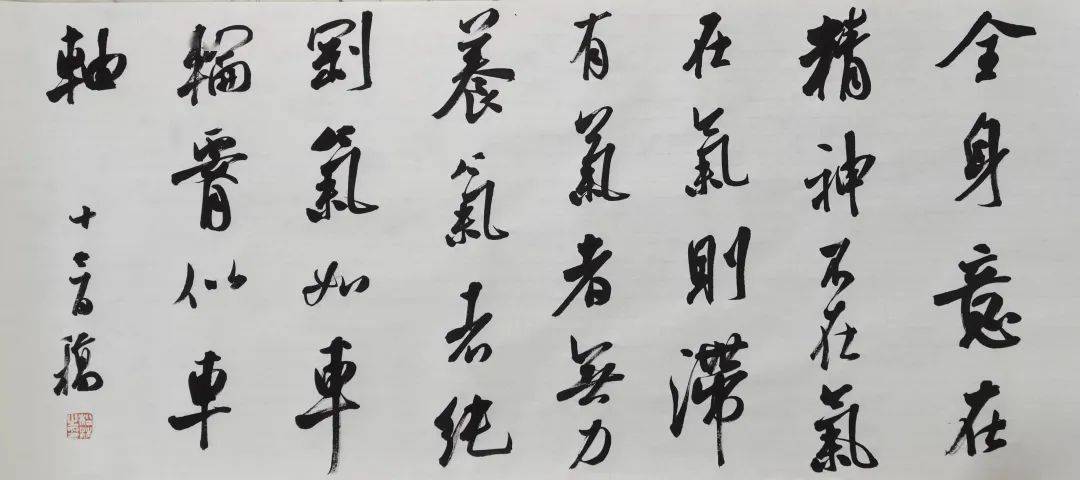 全身意在
精神不在氣
在氣則滯
有氣者無力
養氣者純
剛氣如車
輪腰似車
軸